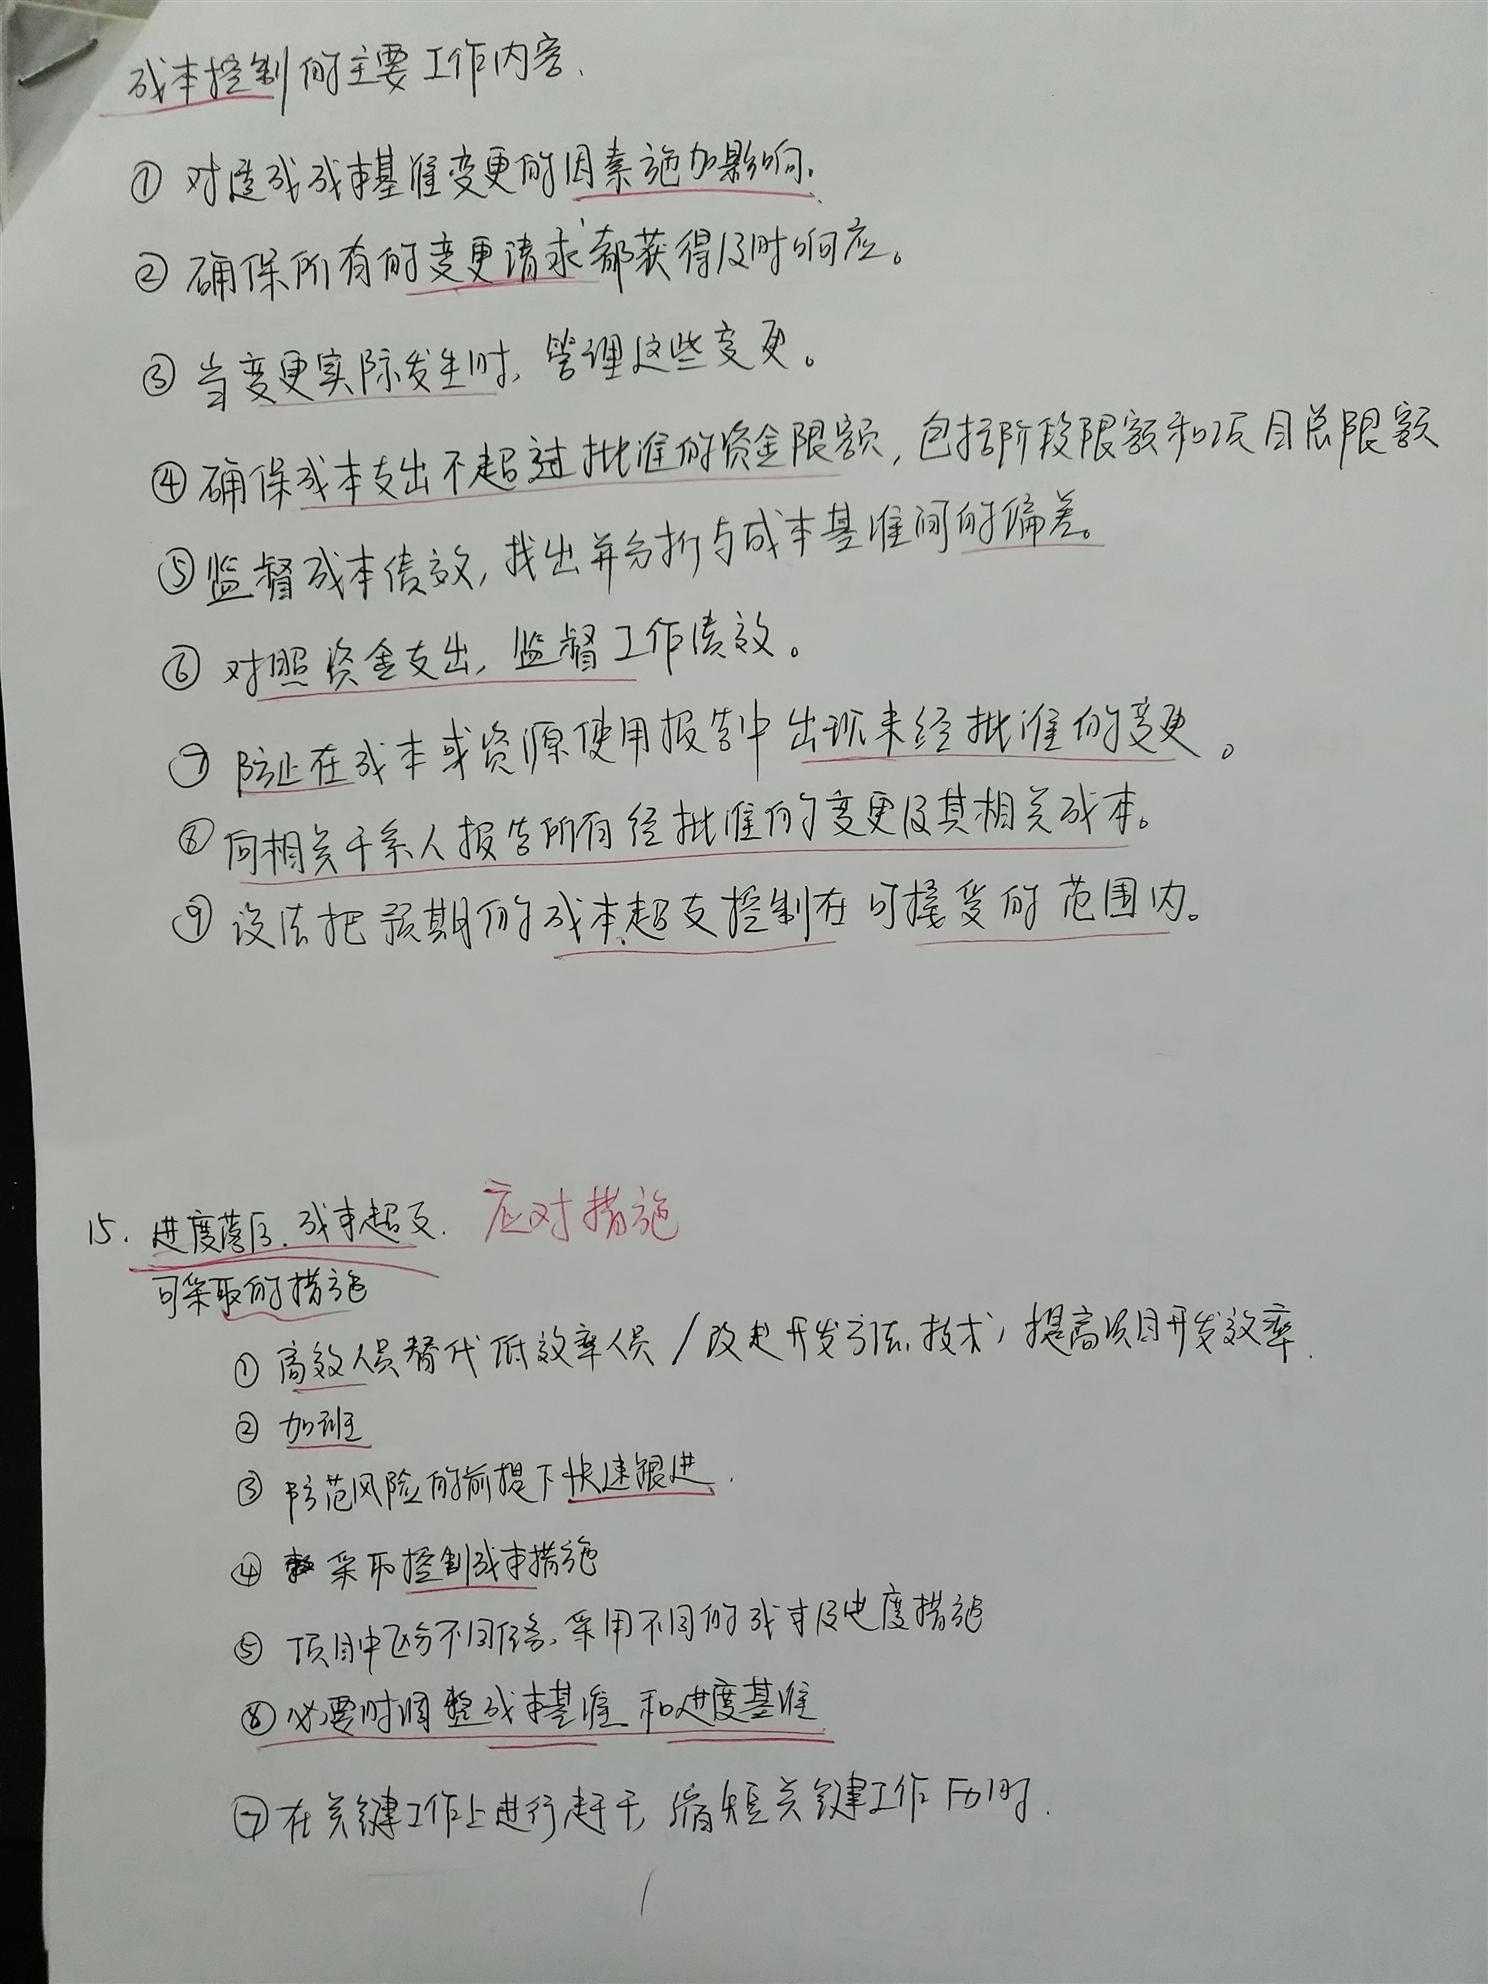 成本控制的主要工作内容、
① 对造成成本基准变更的因素施加影响。
② 确保所有的变更请求都获得及时响应。
③ 当变更实际发生时，管理这些变更。
④ 确保成本支出不超过批准的资金限额，包括阶段限额和项目总限额
⑤ 监督成本绩效，找出并分析与成本基准间的偏差。
⑥ 对照资金支出，监督工作绩效。
⑦ 防止在成本或资源使用报告中出现未经批准的变更。
⑧ 向相关干系人报告所有经批准的变更及其相关成本。
⑨ 设法把预期的成本超支控制在可接受的范围内。
15. 进度落后、成本超支. 应对措施
可采取的措施
① 高效人员替代低效率人员/改进开发方法、技术，提高项目开发效率.
② 加班
③ 防范风险的前提下快速跟进.
④ 采取控制成本措施
⑤ 项目中区分不同任务，采用不同的成本及进度措施
⑥ 必要时调整成本基准和进度基准
⑦ 在关键工作上进行赶工，缩短关键工作历时.